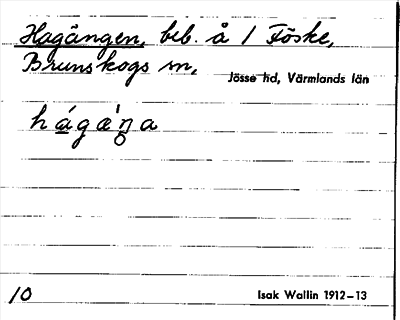 Hagången, beb. å 1 Föske,
Brunskogs sn,
Jösse hd, Värmlands län
hágæ´ŋa
10
Isak Wallin 1912–13